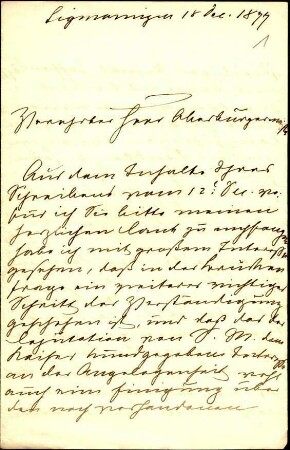 Sigmaringen 18 Dec. 1899
1
Verehrter Herr Oberbürgermeister
Aus dem Inhalte Ihres
Schreibens vom 12. Dec.
für ich Sie bitte meinen
herzlichen Dank zu empfangen
habe ich mit großem Interesse
gesehen, daß in der
Frage ein weiterer wichtiger
Schritt der Verständigung
geschehen ist, und daß das der
Deputation von S. M. dem
Kaiser kundgegebene Interesse
an der Angelegenheit wohl
auch eine Einigung über
den noch vorhandenen